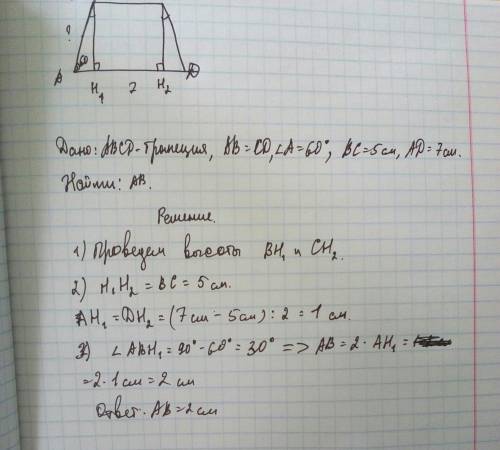 ?
A 60° H₁ 7 H₂ D
Дано: ABCD-трапеция, AB=CD, ∠A=60°, BC=5см, AD=7см.
Найти: AB.
Решение.
1) Проведем высоты BH₁ и CH₂.
2) H₁H₂ = BC = 5 см.
AH₁=DH₂=(7см-5см):2=1 см.
3) ∠ABH₁=90°-60°=30° => AB=2·AH₁=
=2·1см=2 см
Ответ. AB=2 см